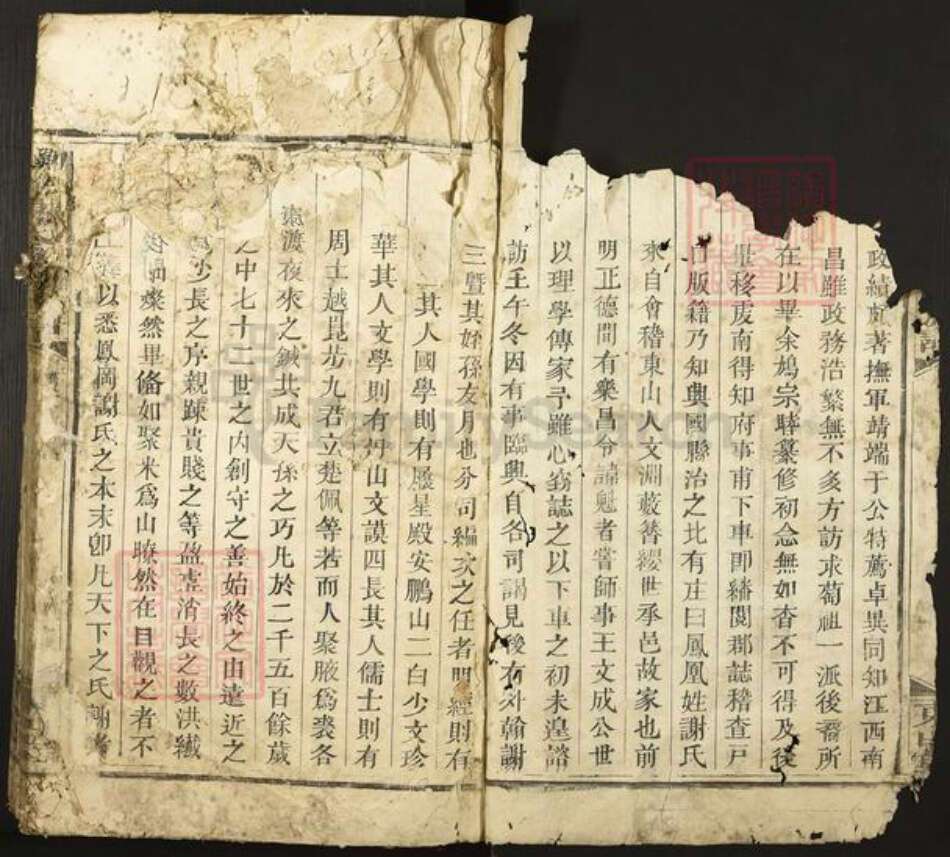 政績著撫軍靖端于公特薦卓異同知江西南
昌雖政務浩繁無不多方訪求萄祖一派後裔所
在以畢余鳩宗聯纂修初念無如杳不可得及後
量移虔南得知府事甫下車即繙閱郡誌稽查戸
口版籍乃知興國縣治之北有庄曰鳳凰姓謝氏
來自會稽東山人文淵藪簪纓世承邑故家也前
明正德間有樂昌令諱魁者嘗師事王文成公世
以理學傳家予雖心竊誌之以下車之初未遑諮
訪壬午冬因有事臨興自各司謁見後有外翰謝
三曁其姪孫友月也分司編次之任者明經則有
其人國學則有展星殿安鵬山二白少文珍
華其人文學則有丹山文謨四長其人儒士則有
周士越崑芳九君立楚佩等若而人聚腋爲裘各
東渡夜來之鍼共成天孫之巧凡於二千五百餘歲
之中七十二世之内創守之善始終之由遠近之
少長之序親踈貴賤之等盈虛消長之數洪纎
燦然畢偹如聚米爲山瞭然在目觀之者不
以悉鳳岡謝氏之本末卽凡天下之氏